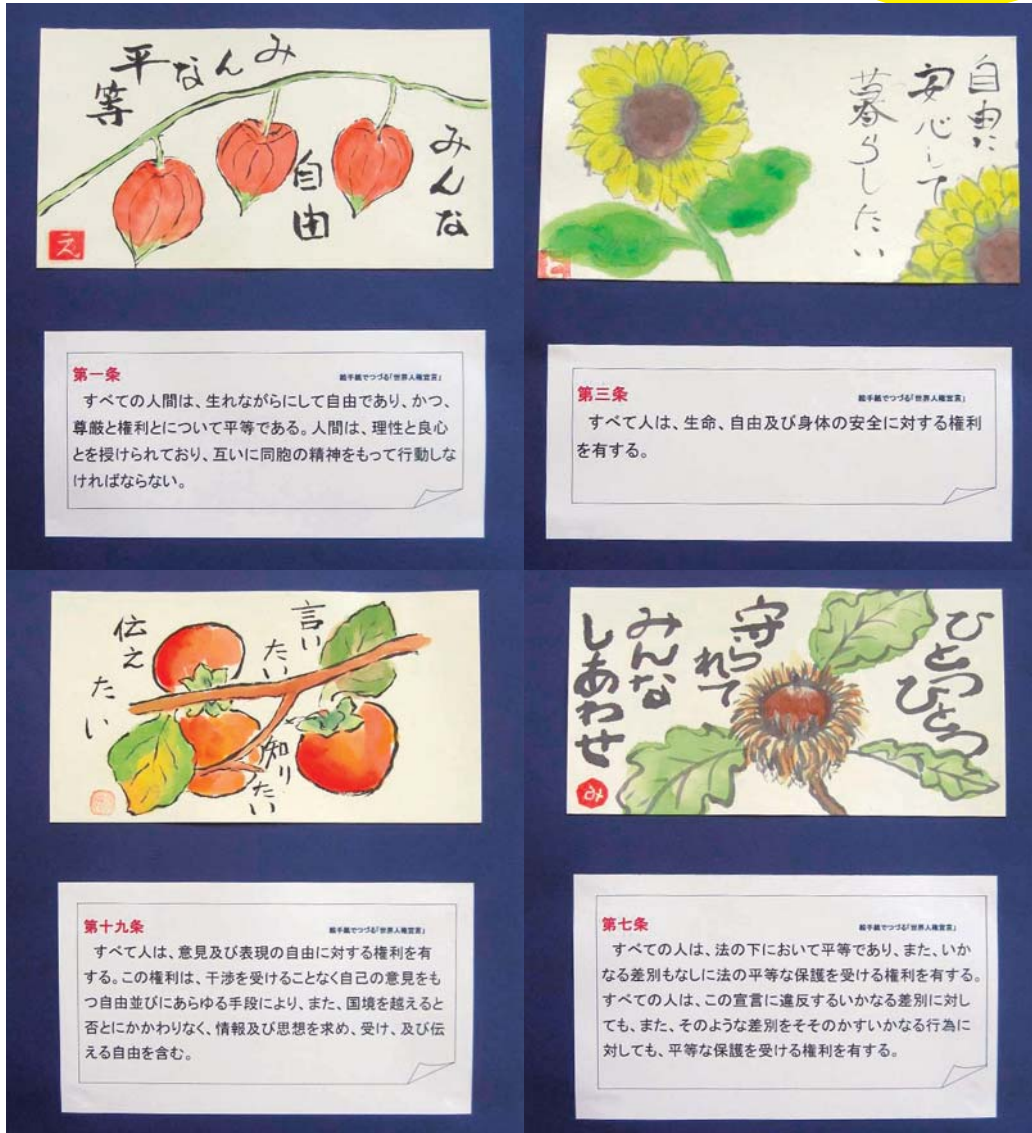 みんな
自由
みんな平等
え
第一条
絵手紙でつづる「世界人権宣言」
すべての人間は、生れながらにして自由であり、かつ、
尊厳と権利とについて平等である。人間は、理性と良心
とを授けられており、互いに同胞の精神をもって行動しな
ければならない。
自由に
安心して
暮らしたい
と
第三条
絵手紙でつづる「世界人権宣言」
すべて人は、生命、自由及び身体の安全に対する権利
を有する。
言い
たい
知りたい
伝え
たい
第十九条
絵手紙でつづる「世界人権宣言」
すべて人は、意見及び表現の自由に対する権利を有
する。この権利は、干渉を受けることなく自己の意見をも
つ自由並びにあらゆる手段により、また、国境を越えると
否とにかかわりなく、情報及び思想を求め、受け、及び伝
える自由を含む。
ひとつ
ひとつ
守ら
れて
みんな
しあわせ
み
第七条
絵手紙でつづる「世界人権宣言」
すべての人は、法の下において平等であり、また、いか
なる差別もなしに法の平等な保護を受ける権利を有する。
すべての人は、この宣言に違反するいかなる差別に対し
ても、また、そのような差別をそそのかすいかなる行為に
対しても、平等な保護を受ける権利を有する。